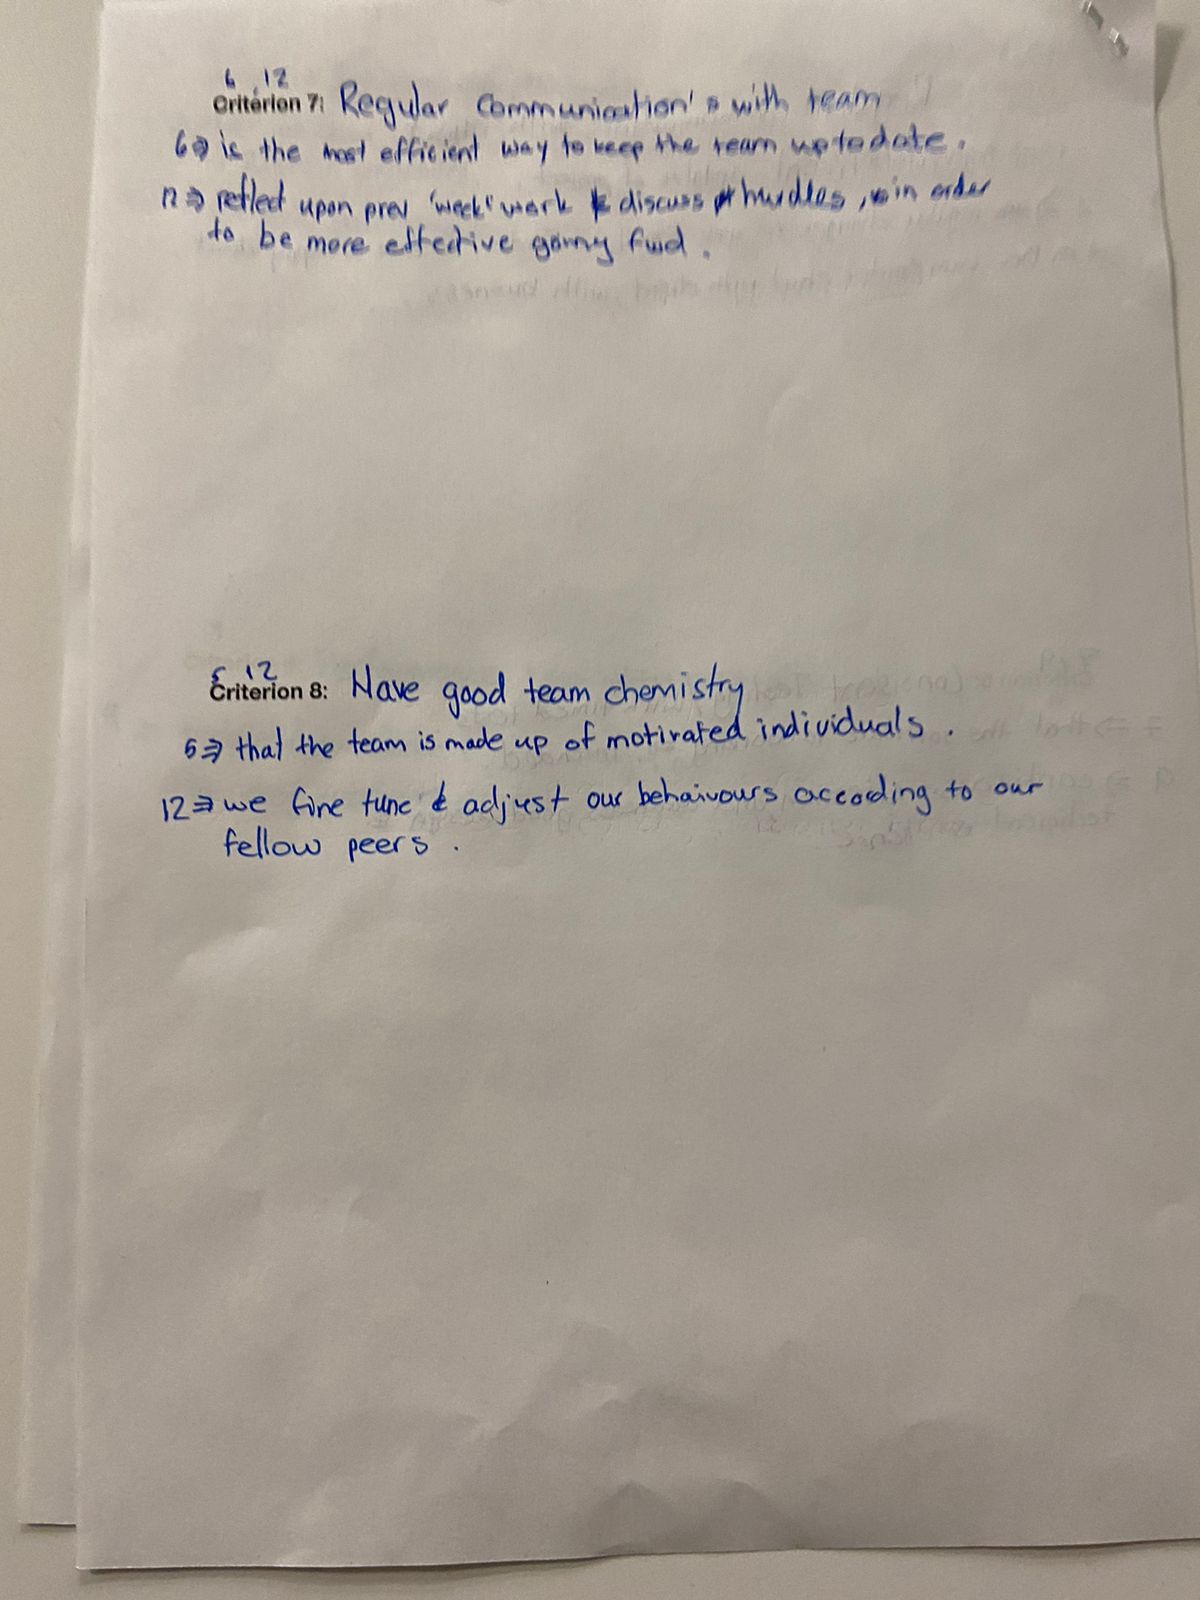 6 , 12
Criterion 7: Regular Communication's with team
6 ⇒ is the most efficient way to keep the team up to date .
12 ⇒ reflect upon prev 'week" work & discuss hurdles , in order
to be more effective going fwd .
5 , 12
Criterion 8: Have good team chemistry
5 ⇒ that the team is made up of motivated individuals .
12 ⇒ we fine tune & adjust our behaivours accoding to our
fellow peers .